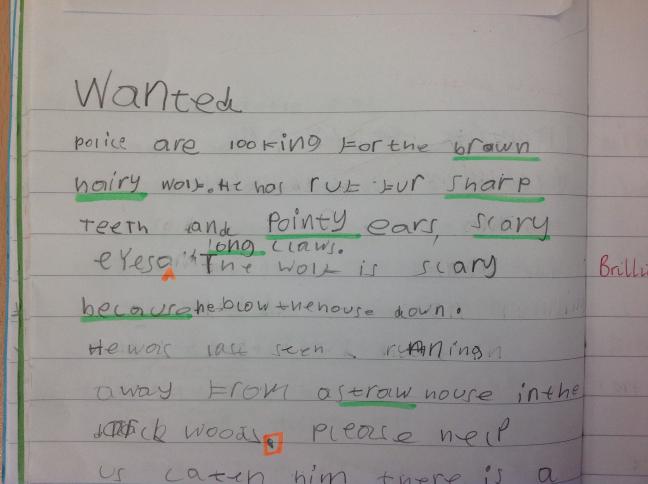 Wanted
police are looking for the brown
hairy wolf. He has ruf fur sharp
teeth and pointy ears, scary
long claws.
eyes The wolf is scary
because he blow the house down.
He was last seen running
away from a straw house in the
woods. Please help
us catch him there is a
Brilli